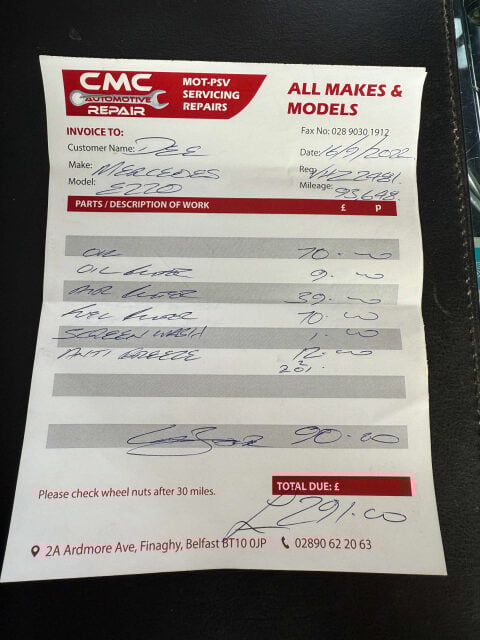 CMC
AUTOMOTIVE
REPAIR
MOT-PSV
SERVICING
REPAIRS
ALL MAKES &
MODELS
INVOICE TO:
Fax No: 028 9030 1912
Customer Name: DEE
Date: 16/9/2022
Make: MERCEDES
Reg: VHZ 2981
Model: E220
Mileage: 93,648
PARTS / DESCRIPTION OF WORK £ p
OIL 70.00
OIL FILTER 9.00
AIR FILTER 39.00
FUEL FILTER 70.00
SCREEN WASH 1.00
ANTI FREEZE 12.00
201.
90.00
TOTAL DUE: £
Please check wheel nuts after 30 miles.
£291.00
2A Ardmore Ave, Finaghy, Belfast BT10 0JP 02890 62 20 63